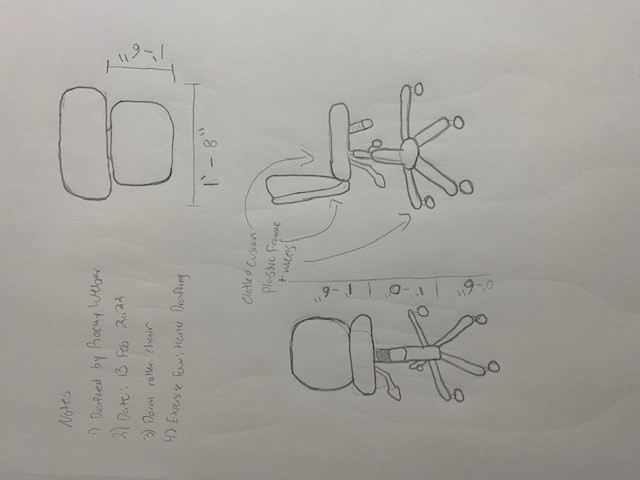 Notes
1) Drafted by Rocky Weber
2) Date: 13 Feb 2022
3) Dorm roller chair
4) Exersise Four: Hand Drafting
1'-6"
1'-8"
Clothed Cusion
Plastic Frame
+ wheels
1'-6"
1'-0"
0'-6"